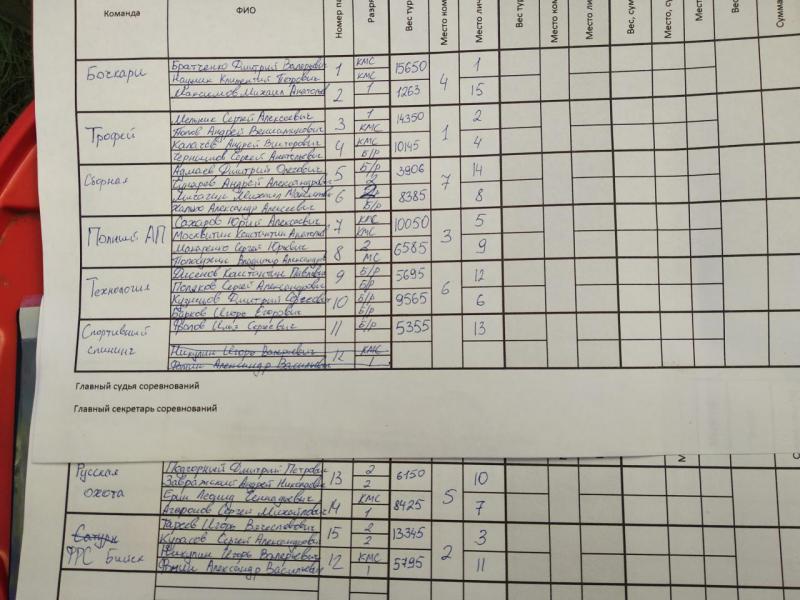 Команда ФИО Номер па Разря Вес тур Место ком Место личн Вес ту Место ком Место ли Вес, сум Место, су Мест Вес Сумма
Бочкари Братченко Дмитрий Валерьевич 1 КМС 15650 4 1
Климентий Петрович КМС
Максимов Михаил Анатол 2 1 1263 15
Трофей Мельник Сергей Алексеевич 3 1 14350 1 2
Попов Андрей Вениаминович КМС
Калачев Андрей Викторович 4 КМС 10145 4
Чернышов Сергей Анатольевич Б/Р
Сборная Дмитрий Олегович 5 Б/Р 3906 7 14
Андрей Александрович 2
Михаил 6 2 8385 8
Александр Алексеевич Б/Р
Полный АП Сахаров Юрий Алексеевич 7 КМС 10050 3 5
Москвитин Константин Анатол КМС
Макаренко Сергей Юрьевич 8 2 6585 9
Владимир Александров МС
Технология Константин Павлович 9 Б/Р 5695 6 12
Поляков Сергей Александрович Б/Р
Кузнецов Дмитрий Сергеевич 10 Б/Р 9565 6
Барков Игорь Егорович Б/Р
Спортивный спининг Фролов Илья Сергеевич 11 Б/Р 5355 13
Никулин Игорь Валерьевич 12 КМС
Фомин Александр Васильевич 1
Главный судья соревнований
Главный секретарь соревнований
Русская охота Подгорный Дмитрий Петрович 13 2 6150 5 10
Завражский Андрей Николаевич 2
Ерин Леонид Геннадьевич 14 КМС 8425 7
Агаронов Сергей Михайлович 1
Сатурн Гареев Игорь Вячеславович 15 2 13345 2 3
ФРС Бийск Курасов Сергей Александрович 2
Никулин Игорь Валерьевич 12 КМС 5795 11
Фомин Александр Васильевич 1